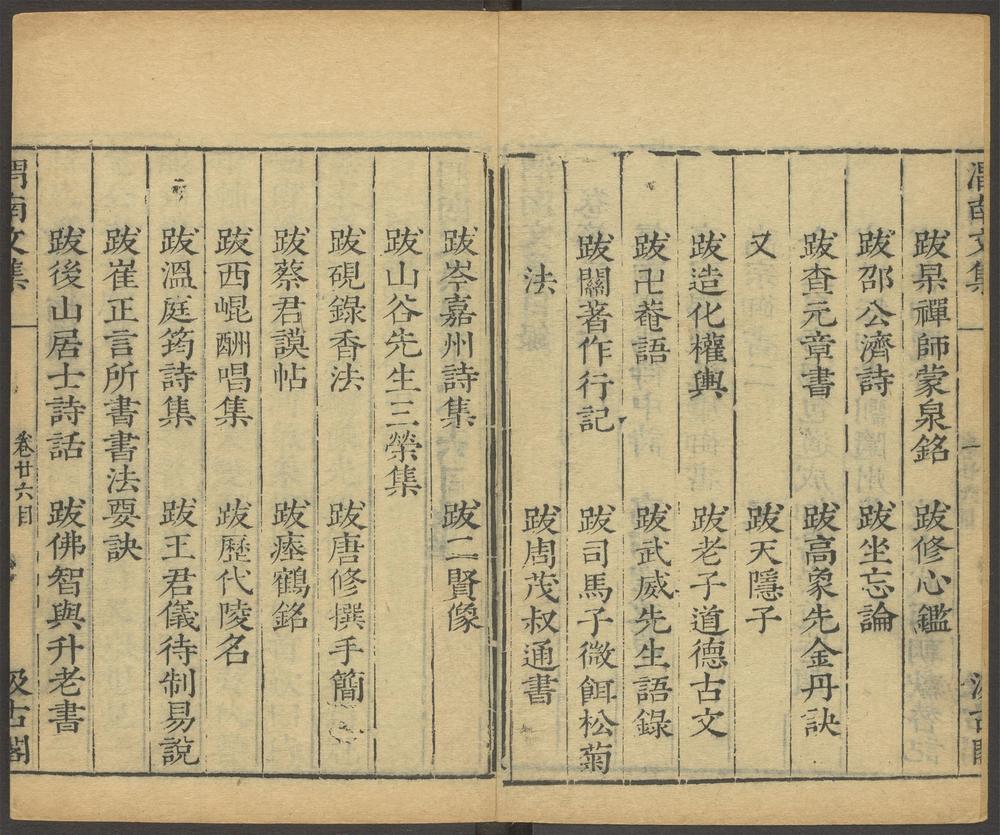 渭南文集
跋杲禪師蒙泉銘　跋修心鑑
跋邵公濟詩　跋坐忘論
跋查元章書　跋高象先金丹訣
又　跋天隱子
跋造化權輿　跋老子道德古文
跋卍菴語　跋武威先生語錄
跋關著作行記　跋司馬子微餌松菊
法　跋周茂叔通書
跋岑嘉州詩集　跋二賢像
跋山谷先生三榮集
跋硯錄香法　跋唐修撰手簡
跋蔡君謨帖　跋瘞鶴銘
跋西崐酬唱集　跋歷代陵名
跋溫庭筠詩集　跋王君儀待制易說
跋崔正言所書書法要訣
跋後山居士詩話　跋佛智與升老書
渭南文集　卷廿六目　汲古閣